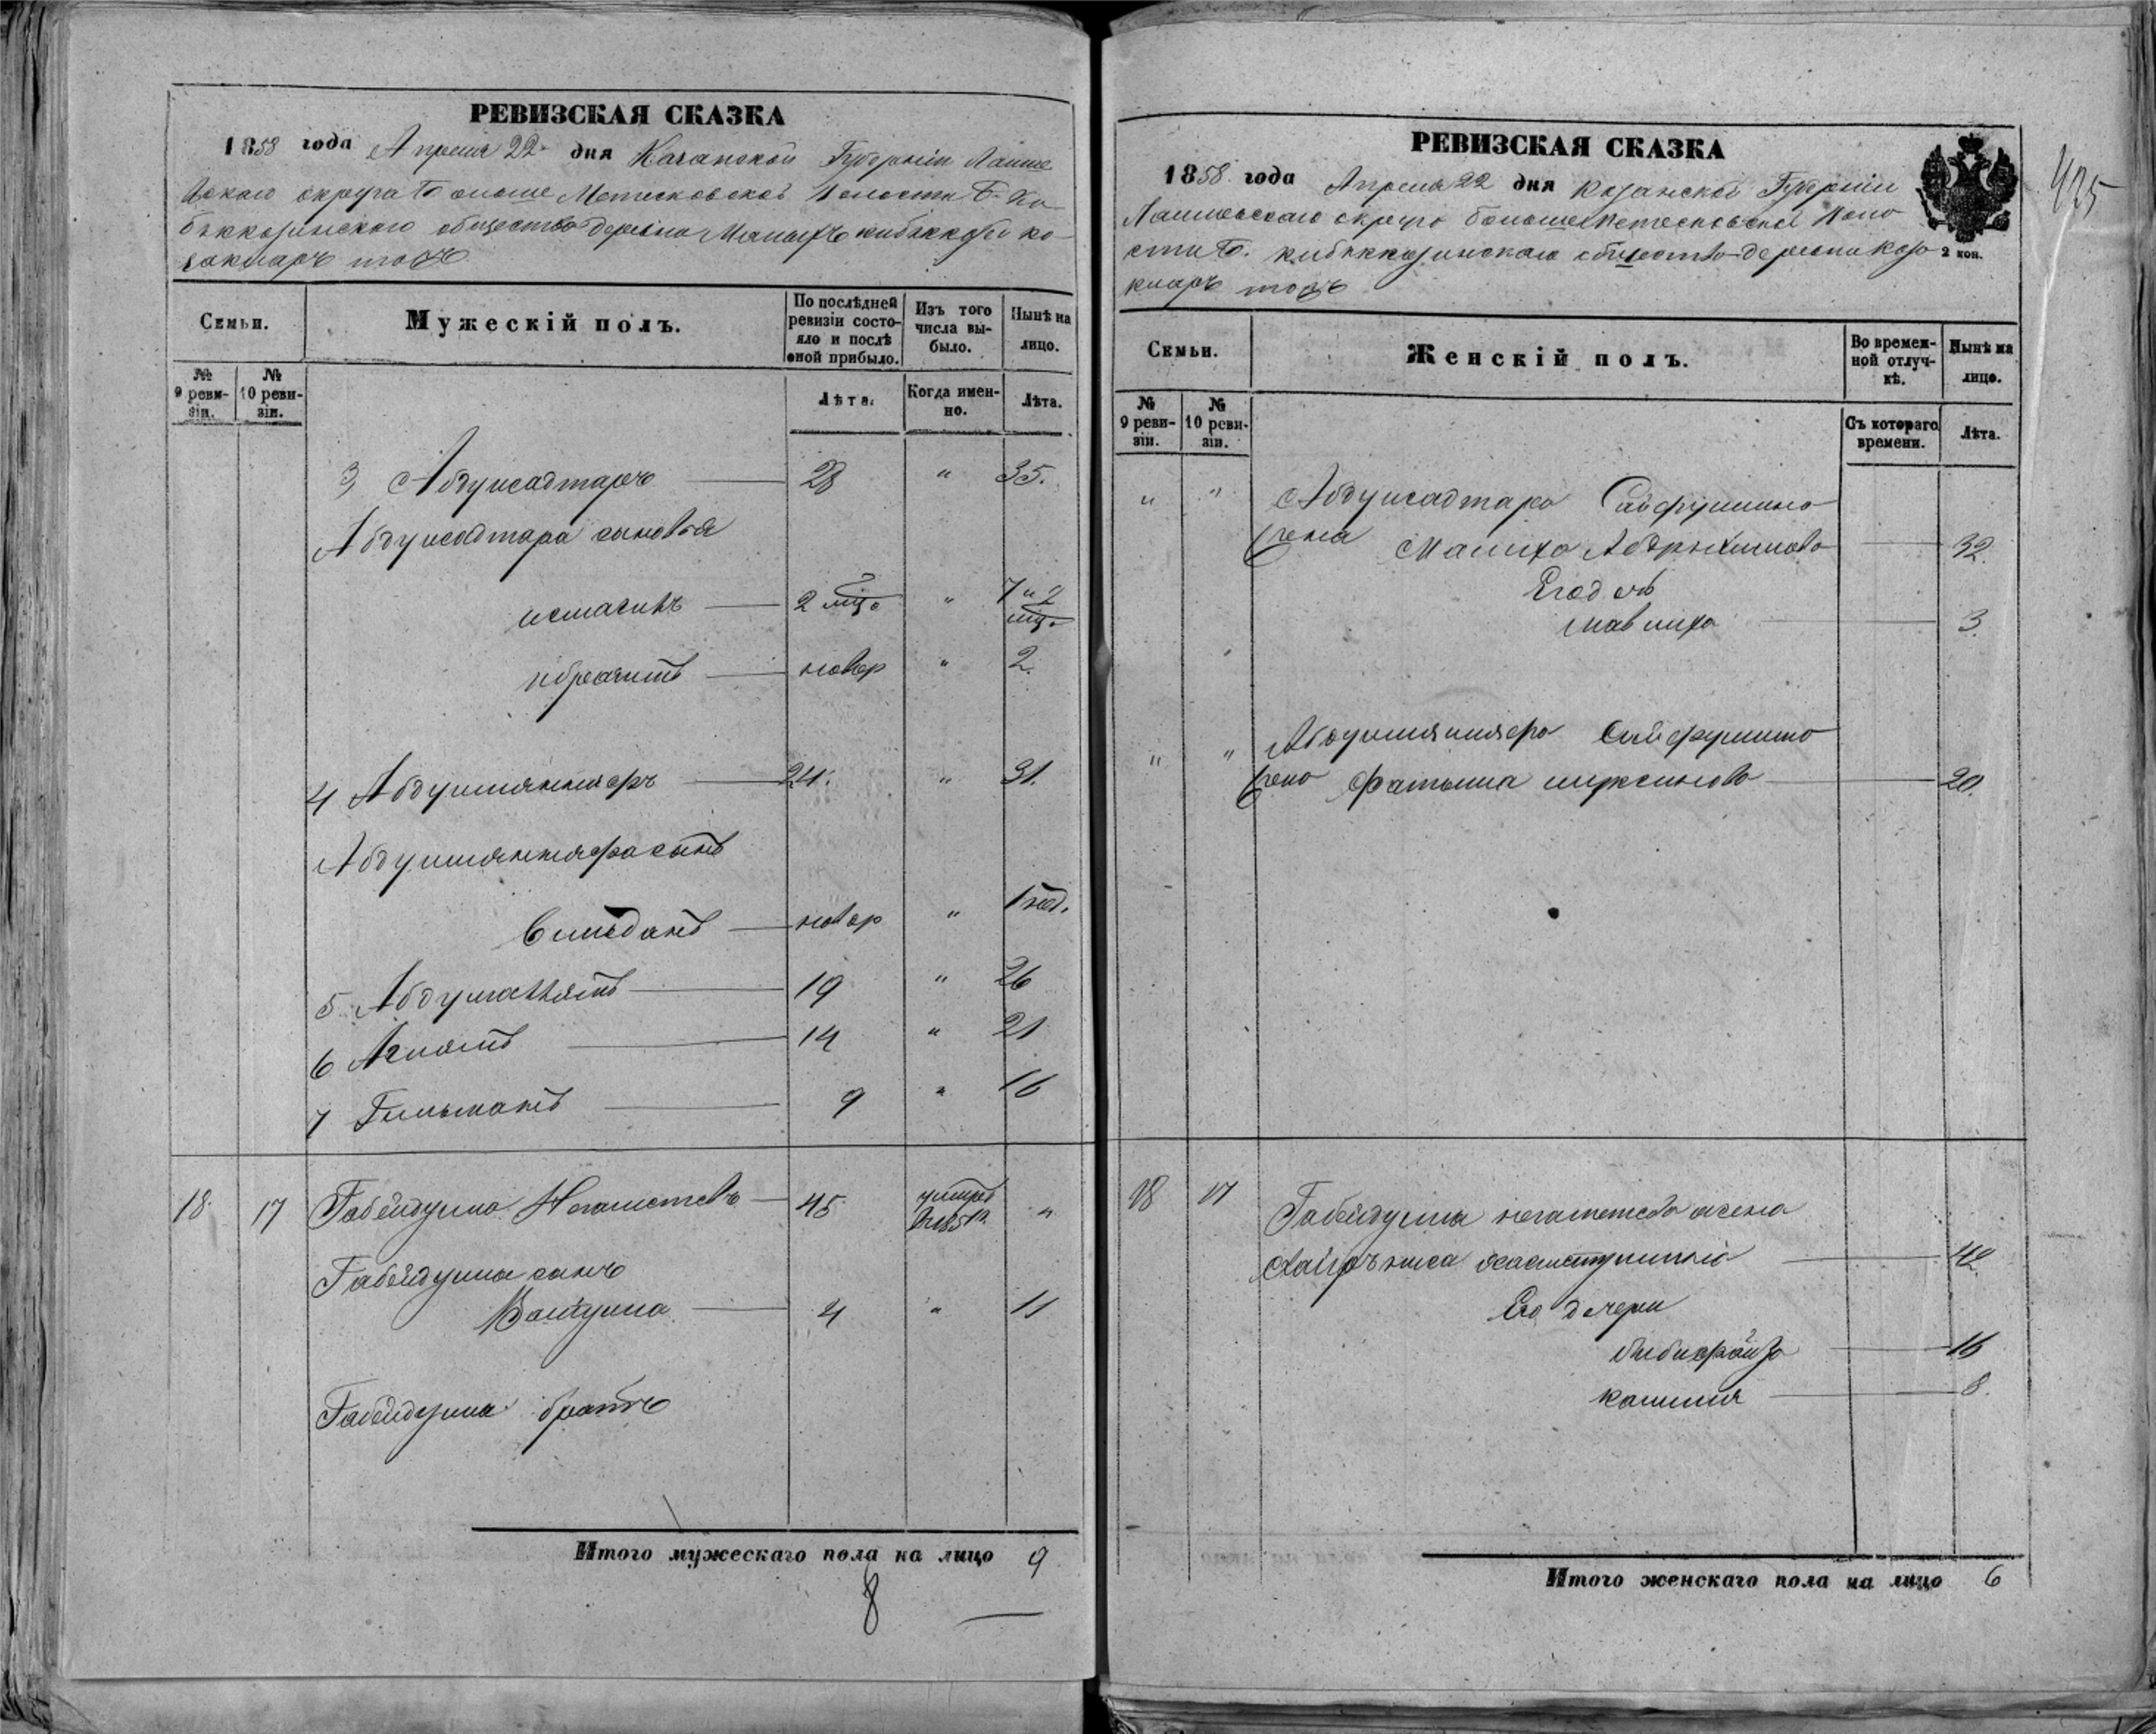 РЕВИЗСКАЯ СКАЗКА
1858 года Апреля 22 дня Казанской Губерніи Лаише
вскаго округа Больше Метесковской Волости Б. Ки
бяккозинскаго общества деревни Малыхъ кибяккози ко
закларъ тожъ
Семьи.
Мужескій полъ.
По послѣдней ревизіи состояло и послѣ оной прибыло.
Изъ того числа выбыло.
Нынѣ на лицо.
№ 9 ревизіи.
№ 10 ревизіи.
Лѣта.
Когда именно.
Лѣта.
3 Абдулсадтаръ 28 " 35.
Абдулсадтара сыновья
исмагилъ 2 мѣц. " 7 и 2 мѣц.
ибрагимъ новор " 2.
4 Абдулмянняфъ 24. " 31.
Абдулмянняфа сынъ
Вильданъ новор " 1 нед.
5 Абдулганнъ 19 " 26
6 Ахмятъ 14 " 21
7 Гильманъ 9 " 16
18. 17 Габейдулла Негаметевъ 45. умеръ 185 "
Габейдуллы сынъ
Валиулла 4 " 11
Габейдуллы братъ
Итого мужескаго пола на лицо 9
8
РЕВИЗСКАЯ СКАЗКА
1858 года Апреля 22 дня Казанской Губерніи
Лаишевскаго округа Больше Метесковской Воло
сти Б. кибяккозинскаго общества деревни коза
кларъ тожъ
2 коп.
425
Семьи.
Женскій полъ.
Во временной отлучкѣ.
Нынѣ на лицо.
№ 9 ревизіи.
№ 10 ревизіи.
Съ котораго времени.
Лѣта.
" " Абдулсадтара Сайфуллина
жена Малиха Абдрхимова 32.
Его дочь
Мавлиха 3.
" " Абдулмянняфа Сайфуллина
жена Фатыма 20.
18 17 Габейдуллы негаметева жена
42
Его дочери
бибифайза 16
камиля 8.
Итого женскаго пола на лицо 6